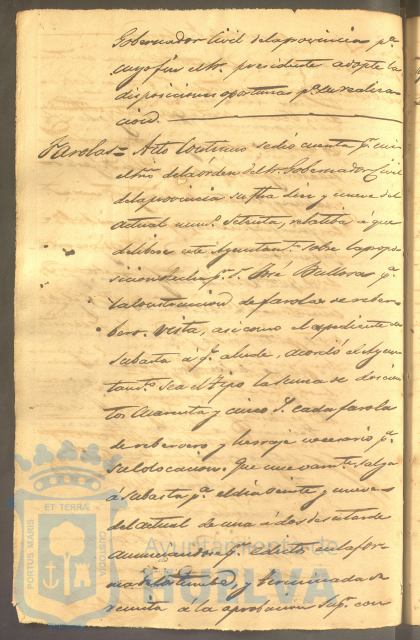 Gobernador Civil de la provincia pª
cuyo fin el Sr. presidente adopte las
disposiciones oportunas pª su realiza
cion.
Farolas = Acto continuo se dió cuenta pr mi
el Srio de la órden del Sr. Gobernador Civil
de la provincia su fha diez y nueve del
actual numº setenta, relatiba á que
delibere este Ayuntamto sobre la propo
sicion hecha pr Dn José Ballora pª
la construccion de farolas de reber
bero. Vista, asi como el espediente de
subasta á qe alude, acordó el Ayun
tamto sea el tipo la suma de doscien
tos cuarenta y cinco rs cada farola
de reberbero y herraje necesario pª
su colocacion. Que nuevamte salga
á subasta pª el dia veinte y nueve
del actual de una á dos de su tarde
anunciandose pr edictos en la for
ma y terminada se
remita a la aprobacion supr con
PORTUS MARIS
ET TERRÆ
CUSTODIA
Ayuntamiento de
HUELVA